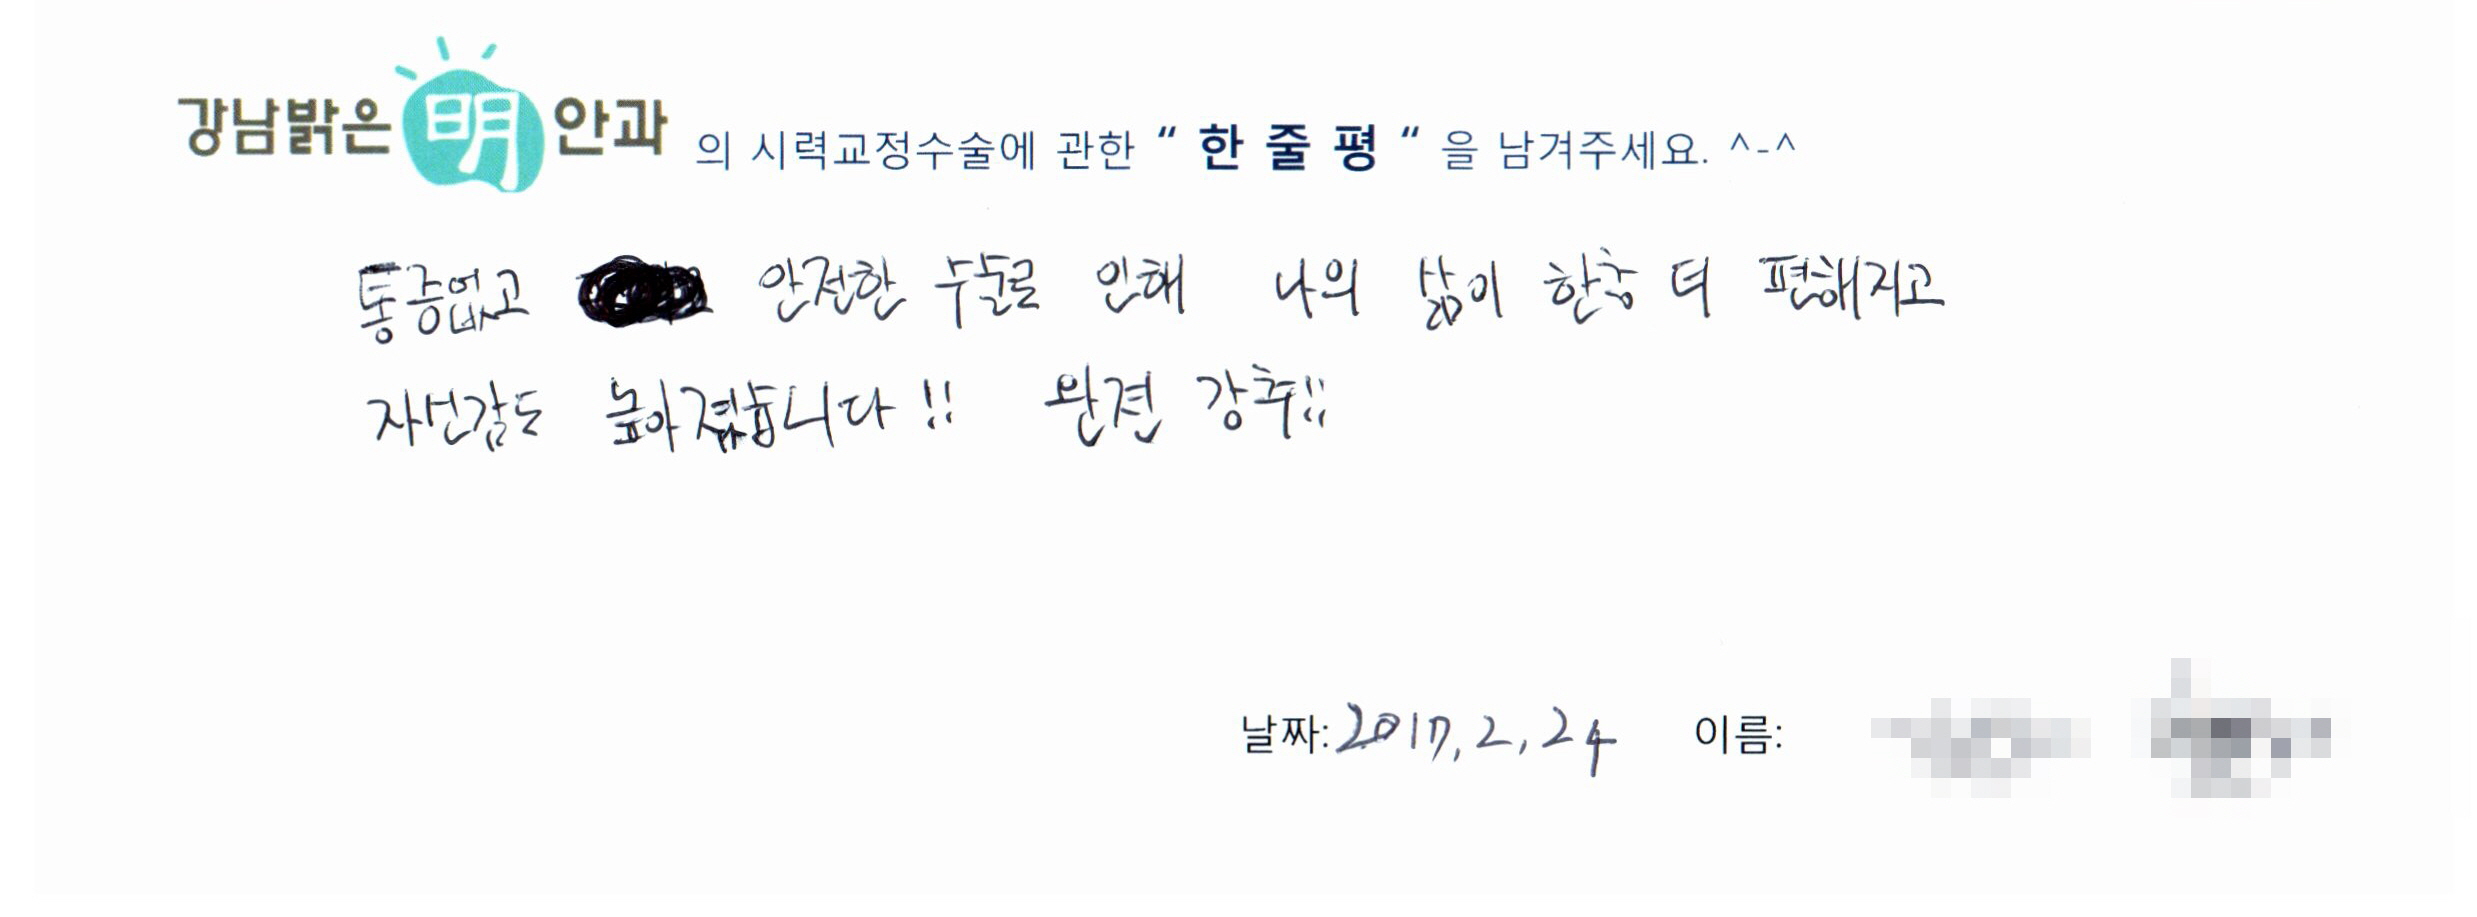 강남밝은明안과 의 시력교정수술에 관한 “ 한 줄 평 “ 을 남겨주세요. ^-^
통증없고 안전한 수술로 인해 나의 삶이 한층 더 편해지고
자신감도 높아졌습니다!! 완전 강추!!
날짜: 2017. 2. 24 이름: